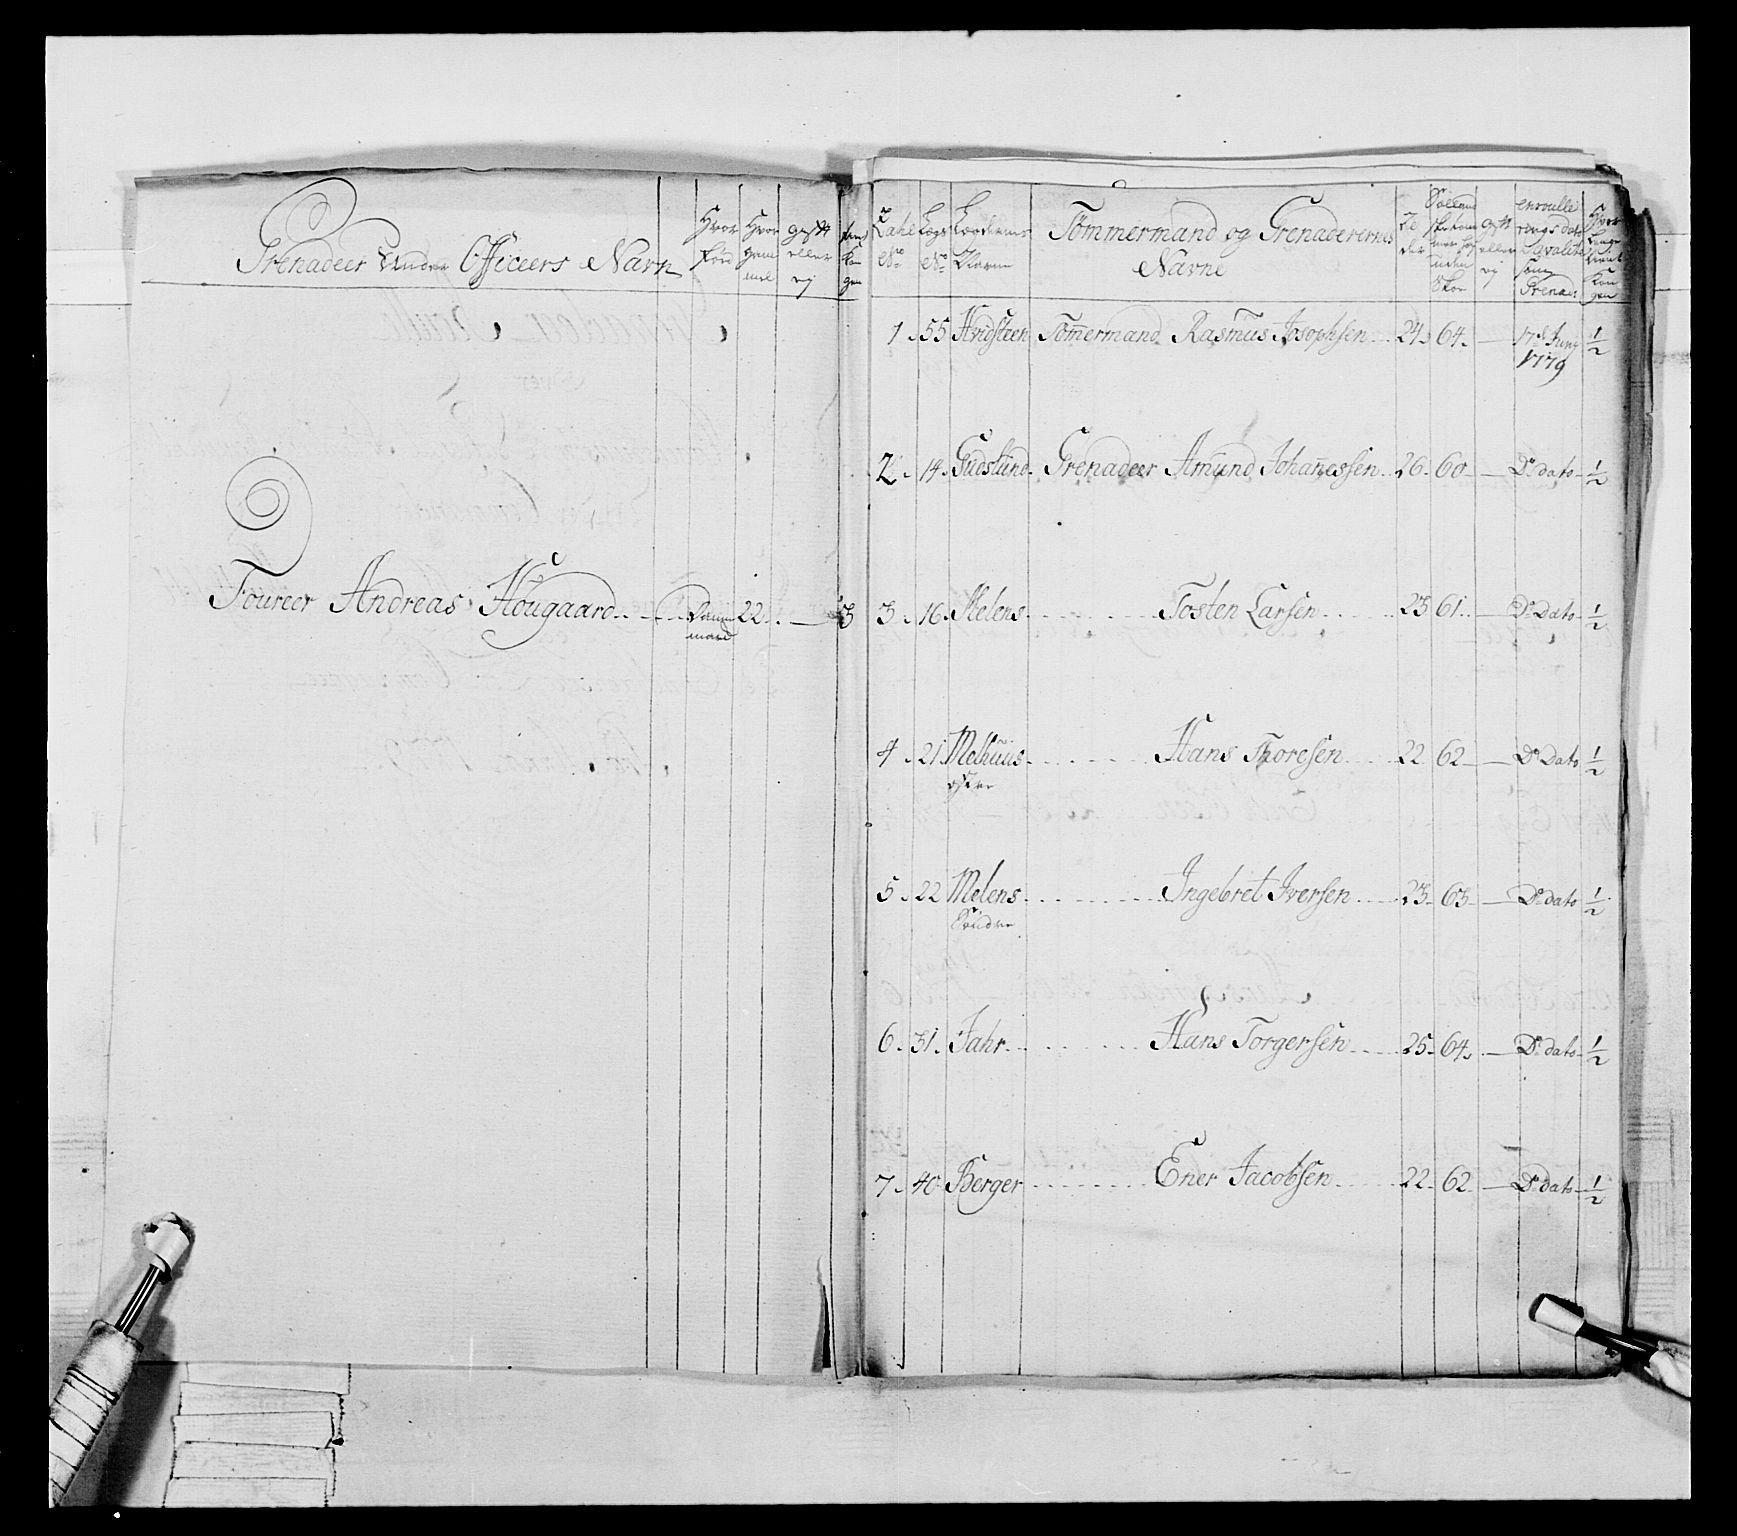 Grenadeer Under Officeers Navn
Hvor Fød
Hvor gam mel
gift eller ej
Foureer Andreas Hougaard 22 3
Tahl No
Legs No
Lægdernes Navne
Tømmermand og Grenaderernes Navne
gift eller ej
Hvor Længe tient Kon gen
1 55 Hvidsteen Tømermand Rasmus Josephsen 24 64 — 17d Juny 1779 1/2
2 14 Gudslund Grenadeer Amund Johanessen 26 60 — Do dato 1/2
3 16 Melens Tosten Larsen 23 61 — Do Dato 1/2
4 21 Melhuus Hans Thoresen 22 62 — Do Dato 1/2
østre
5 22 Melens Ingebret Iversen 23 63 — Do dato 1/2
Søndre
6 31 Jahr Hans Torgersen 25 64 — Do dato 1/2
7 40 Berger Ener Jacobsen 22 62 — Do dato 1/2